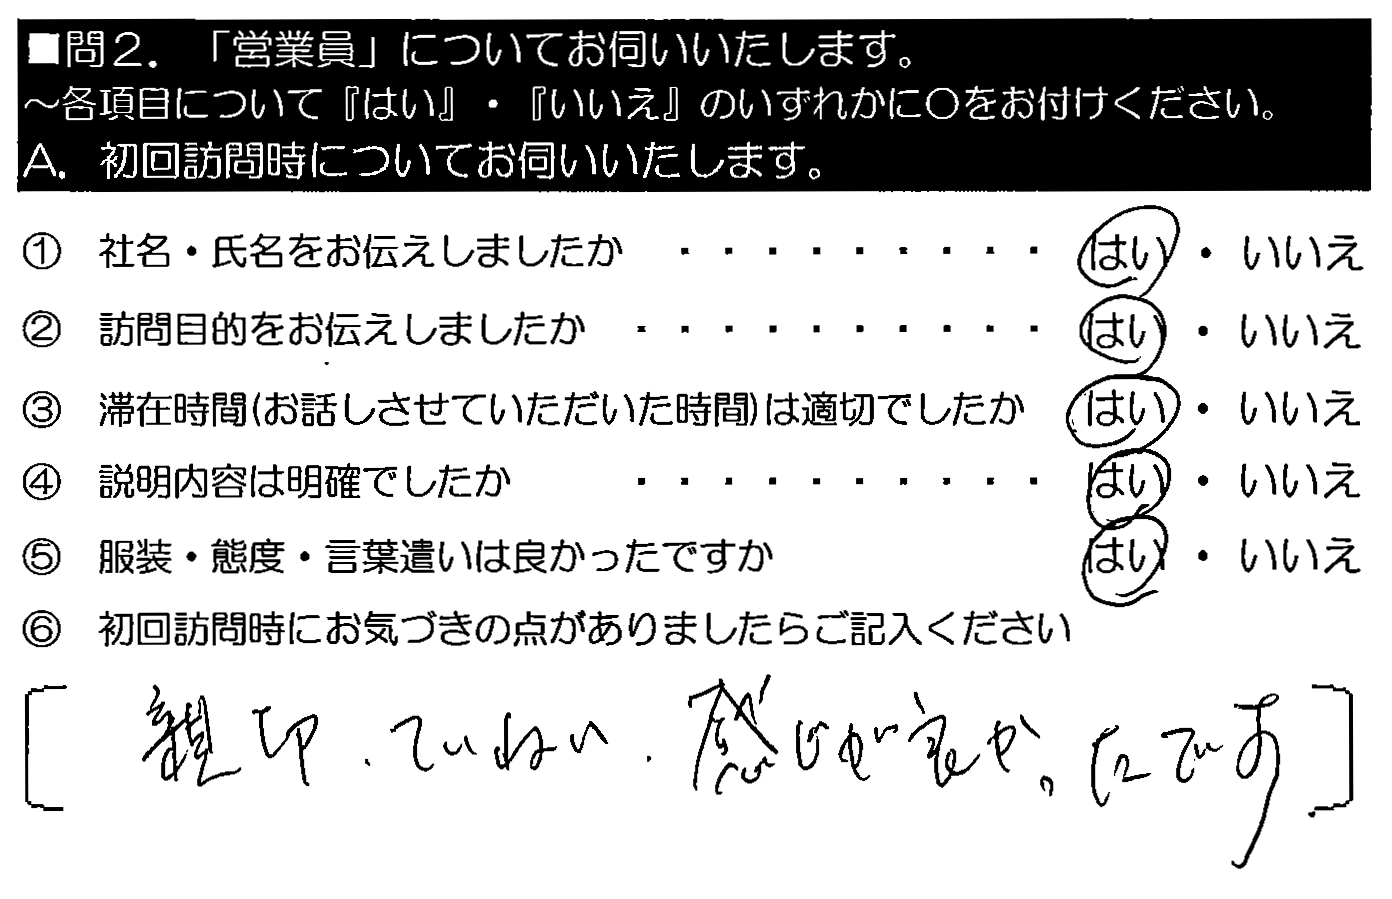 ■問2.「営業員」についてお伺いいたします。
～各項目について『はい』・『いいえ』のいずれかに○をお付けください。
A. 初回訪問時についてお伺いいたします。
① 社名・氏名をお伝えしましたか ・・・・・・・・・ はい ・ いいえ
② 訪問目的をお伝えしましたか ・・・・・・・・・・ はい ・ いいえ
③ 滞在時間(お話しさせていただいた時間)は適切でしたか はい ・ いいえ
④ 説明内容は明確でしたか ・・・・・・・・・・ はい ・ いいえ
⑤ 服装・態度・言葉遣いは良かったですか はい ・ いいえ
⑥ 初回訪問時にお気づきの点がありましたらご記入ください
親切、ていねい、感じが良かったです